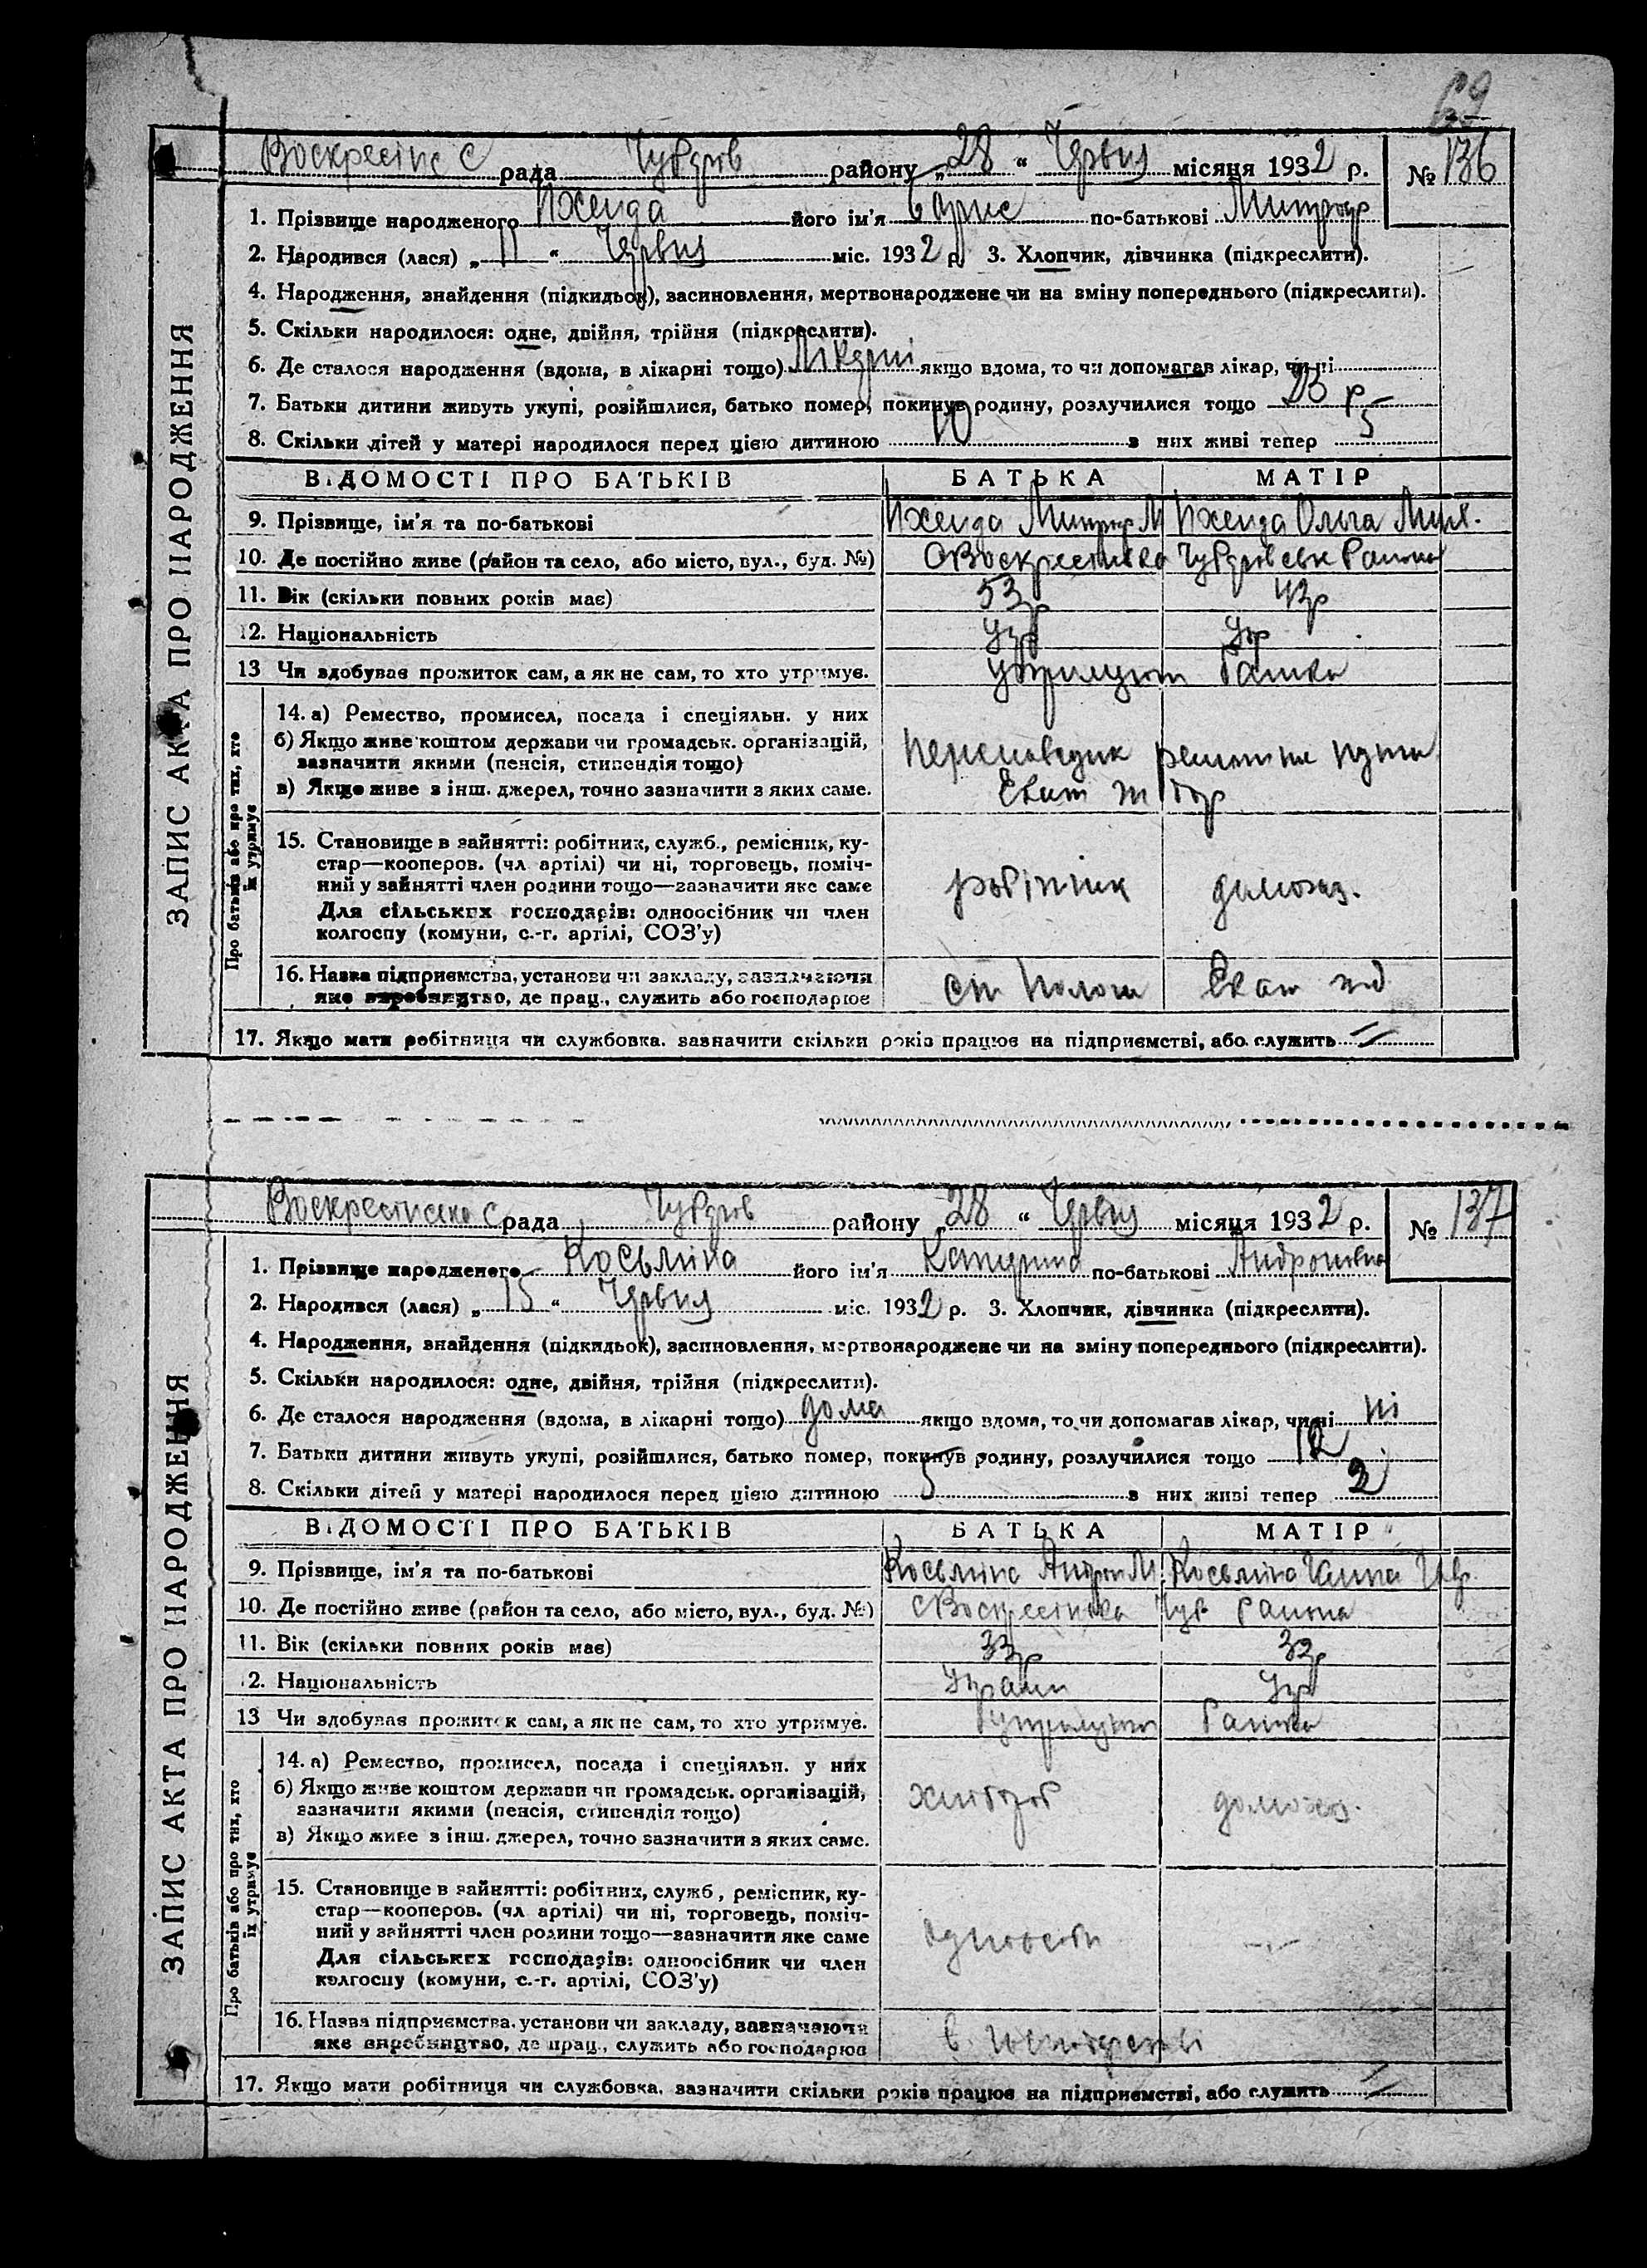 69
Воскресінс с рада Чубарів району „28“ Червня місяця 1932 р. № 136
1. Прізвище народженого його ім'я Борис по-батькові Митроф
2. Народився (лася) „11“ Червня міс. 1932 р. 3. Хлопчик, дівчинка (підкреслити).
4. Народження, знайдення (підкидьок), засиновлення, мертвонароджене чи на зміну попереднього (підкреслити).
5. Скільки народилося: одне, двійня, трійня (підкреслити).
6. Де сталося народження (вдома, в лікарні тощо) Лікарні якщо вдома, то чи допомагав лікар, чи ні
7. Батьки дитини живуть укупі, розійшлися, батько помер, покинув родину, розлучилися тощо 23 р
8. Скільки дітей у матері народилося перед цією дитиною 10 з них живі тепер 5
ВІДОМОСТІ ПРО БАТЬКІВ БАТЬКА МАТІР
9. Прізвище, ім'я та по-батькові Митроф М Ольга Мих.
10. Де постійно живе (район та село, або місто, вул., буд. №) С Воскресінка Чубарівськ Району
11. Вік (скільки повних років має) 53р 43р
12. Національність Укр Укр
13 Чи здобуває прожиток сам, а як не сам, то хто утримує. утримуют Батька
Про батьків або про тих, хто їх утримує
14. а) Ремество, промисел, посада і спеціяльн. у них
б) Якщо живе коштом держави чи громадськ. організацій, зазначити якими (пенсія, стипендія тощо)
в) Якщо живе з інш. джерел, точно зазначити з яких саме.
ремонтна
15. Становище в зайнятті: робітник, служб., ремісник, ку-
стар—кооперов. (чл. артілі) чи ні, торговець, поміч-
ний у зайнятті член родини тощо—зазначити яке саме робітник домогаз.
Для сільських господарів: одноосібник чи член
колгоспу (комуни, с.-г. артілі, СОЗ'у)
16. Назва підприємства, установи чи закладу, зазначаючи
яке виробництво, де прац., служить або господарює ст Пологи Екат жд
17. Якщо мати робітниця чи службовка, зазначити скільки років працює на підприємстві, або служить //
ЗАПИС АКТА ПРО НАРОДЖЕННЯ
Воскресінська с рада Чубарів району „28“ Червня місяця 1932 р. № 137
1. Прізвище народженого Косьміна його ім'я Катерина по-батькові Андронівна
2. Народився (лася) „15“ Червня міс. 1932 р. 3. Хлопчик, дівчинка (підкреслити).
4. Народження, знайдення (підкидьок), засиновлення, мертвонароджене чи на зміну попереднього (підкреслити).
5. Скільки народилося: одне, двійня, трійня (підкреслити).
6. Де сталося народження (вдома, в лікарні тощо) дома якщо вдома, то чи допомагав лікар, чи ні ні
7. Батьки дитини живуть укупі, розійшлися, батько помер, покинув родину, розлучилися тощо 12
8. Скільки дітей у матері народилося перед цією дитиною 5 з них живі тепер 2
ВІДОМОСТІ ПРО БАТЬКІВ БАТЬКА МАТІР
9. Прізвище, ім'я та по-батькові Косьміна Андрон М. Косьміна Ганна
10. Де постійно живе (район та село, або місто, вул., буд. №) с Воскресінка Чуб Района
11. Вік (скільки повних років має) 33р 33р
12. Національність Украин Укр
13 Чи здобуває прожиток сам, а як не сам, то хто утримує. утримуют Батька
Про батьків або про тих, хто їх утримує
14. а) Ремество, промисел, посада і спеціяльн. у них
б) Якщо живе коштом держави чи громадськ. організацій,
зазначити якими (пенсія, стипендія тощо) хлібороб домогаз.
в) Якщо живе з інш. джерел, точно зазначити з яких саме.
15. Становище в зайнятті: робітник, служб., ремісник, ку-
стар—кооперов. (чл. артілі) чи ні, торговець, поміч-
ний у зайнятті член родини тощо—зазначити яке саме
Для сільських господарів: одноосібник чи член
колгоспу (комуни, с.-г. артілі, СОЗ'у)
16. Назва підприємства, установи чи закладу, зазначаючи
яке виробництво, де прац., служить або господарює
17. Якщо мати робітниця чи службовка, зазначити скільки років працює на підприємстві, або служить //
ЗАПИС АКТА ПРО НАРОДЖЕННЯ